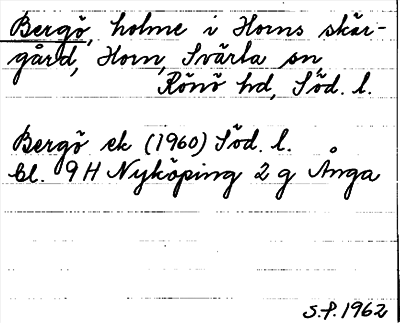 Bergö, holme i Horns skär-
gård, Horn, Svärta sn
Rönö hd, Söd. l.
Bergö ek (1960) Söd. l.
bl. 9H Nyköping 2 g Ånga
S.P. 1962